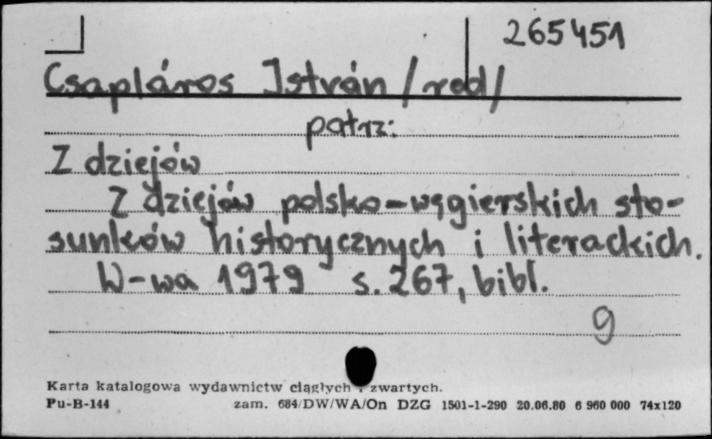 265451
Csapláros István /red/
patrz:
Z dziejów
Z dziejów polsko-węgierskich sto-
sunków historycznych i literackich.
W-wa 1979 s. 267, bibl.
9
Karta katalogowa wydawnictw ciągłych i zwartych.
Pu-B-144 zam. 684/DW/WA/On DZG 1501-1-290 20.06.80 6 960 000 74x120